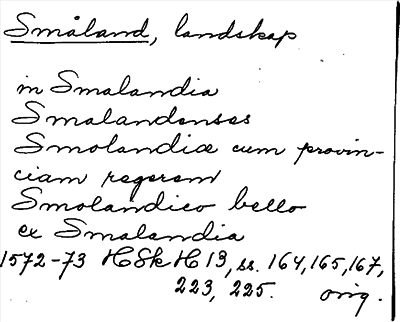 Småland, landskap
in Smalandia
Smalandenses
Smolandiæ cum provin-
ciam regerem
Smolandico bello
ex Smalandia
1572-73 HSk H 13, ss. 164, 165, 167,
223, 225. orig.